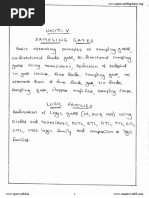 www.specworldexpress.com
www.smartworld.com
UNIT-V
SAMPLING GATES
Basic operating principles of sampling gates
unidirectional diode gate, bi directional sampling
gates using transistors, Reduction of pedestal
in gate circuit, four diode sampling gate, an
alternate form of four diode gate, six diode
sampling gate, chopper amplifier, sampling scope.
LOGIC FAMILIES
Realization of logic gates (OR, AND, NOT) using
diodes and transistors, DCTL, RTL, DTL, TTL, ECL,
CMOS logic family and comparison of logic
families.